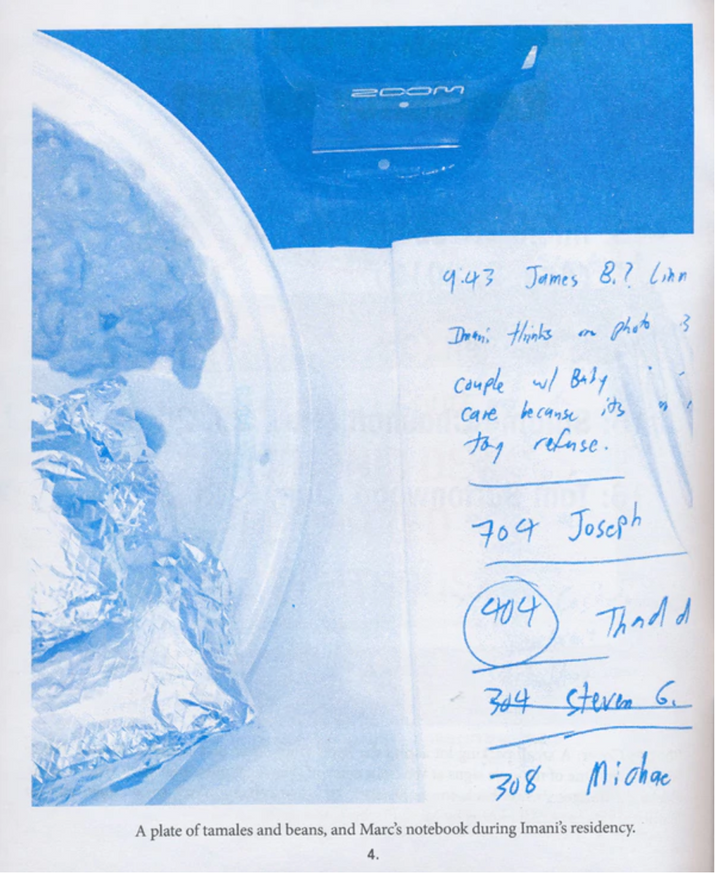 ZOOM
9:43 James B.? Linn
Imani thinks on photo 3
couple w/ Baby
care because its a
they refuse.
704 Joseph
404 Thad d
304 Steven G.
308 Michae
A plate of tamales and beans, and Marc's notebook during Imani's residency.
4.